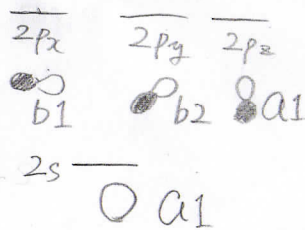 2px 2py 2pz
b1 b2 a1
2s
a1